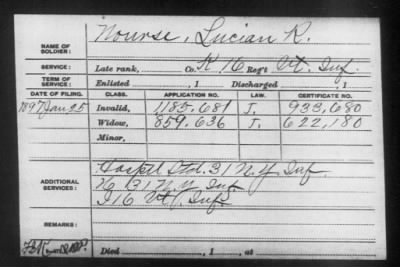 NAME OF SOLDIER: Nourse, Lucian R.
SERVICE: Late rank, Co. K 16 Reg't Vt. Inf.
TERM OF SERVICE: Enlisted , 1 Discharged , 1
DATE OF FILING. CLASS. APPLICATION NO. LAW. CERTIFICATE NO.
1897 Jan 25 Invalid, 1185,681 J. 933,680
Widow, 859,636 J. 622,180
Minor,
Hospl Std. 31 N.Y. Inf.
ADDITIONAL SERVICES: K 131 N.Y. Inf.
I 16 Vt. Inf.
REMARKS:
Died , 1 , at